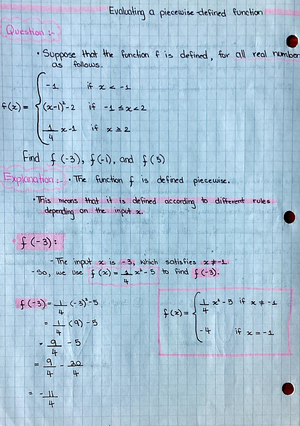 Evaluating a piecewise-defined function
Question :-
• Suppose that the function f is defined, for all real number
as follows.
f(x) = { -1 if x < -1
(x-1)²-2 if -1 ≤ x < 2
1/4 x-1 if x ≥ 2
Find f(-3), f(-1), and f(5)
Explanation :- • The function f is defined piecewise.
• This means that it is defined according to different rules
depending on the input x.
• f(-3):
- The input x is -3, which satisfies x ≠ -1
- So, we use f(x) = 1/4 x² - 5 to find f(-3).
f(-3) = 1/4 (-3)² - 5
= 1/4 (9) - 5
= 9/4 - 5
= 9/4 - 20/4
= - 11/4
f(x) = { 1/4 x² - 5 if x ≠ -1
-4 if x = -1